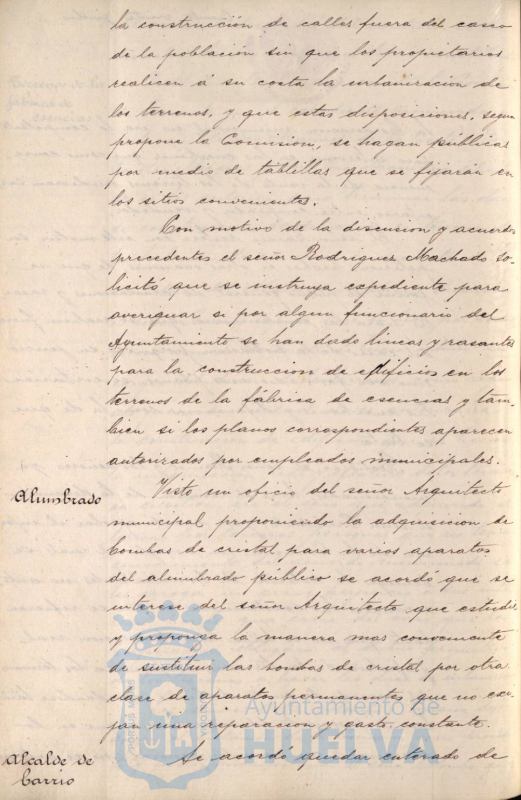 la construcción de calles fuera del casco
de la población sin que los propietarios
realicen á su costa la urbanización de
los terrenos, y que estas disposiciones, segun
propone la Comisión, se hagan públicas
por medio de tablillas que se fijarán en
los sitios convenientes.
Con motivo de la discusion y acuerdo
precedentes el señor Rodriguez Machado so-
licitó que se instruya expediente para
averiguar si por algun funcionario del
Ayuntamiento se han dado lineas y rasantes
para la construccion de edificios en los
terrenos de la fábrica de esencias y tam-
bien si los planos correspondientes aparecen
autorizados por empleados municipales.
Alumbrado
Visto un oficio del señor Arquitecto
municipal proponiendo la adquisicion de
bombas de cristal para varios aparatos
del alumbrado público se acordó que se
interese del señor Arquitecto que estudie
y proponga la manera mas conveniente
de sustituir las bombas de cristal por otra
clase de aparatos permanentes que no exi-
jan una reparacion y gasto constante.
Alcalde de
barrio
Se acordó quedar enterado de
Ayuntamiento de
HUELVA